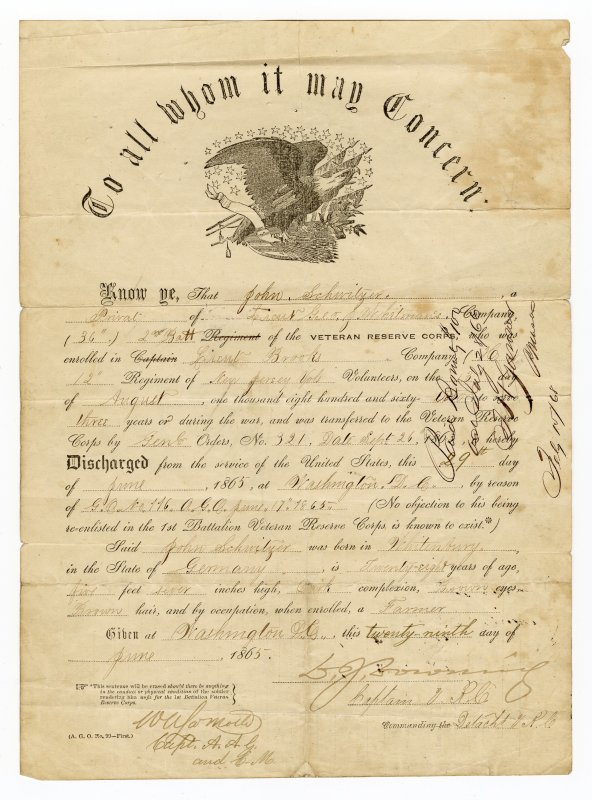 To all whom it may Concern:
Know ye, That John Schwitzer, a
Privat of Lieut Geo. J. Company,
(36th) 2nd Batt Regiment of the VETERAN RESERVE CORPS, who was
enrolled in Captain Lieut Brooks Company
12 Regiment of New Jersey Vols Volunteers, on the day
of August, one thousand eight hundred and sixty- to serve
three years or during the war, and was transferred to the Veteran Reserve
Corps by Genl Orders, No. 321, Date Sept 26, is hereby
Discharged from the service of the United States, this 29th day
of June, 1865, at Washington, D. C., by reason
of G.O. No. 116. A.G.O. June, 17th 1865. (No objection to his being
re-enlisted in the 1st Battalion Veteran Reserve Corps is known to exist.*)
Said John Schwitzer was born in
in the State of Germany, is Twenty-eight years of age,
five feet seven inches high, Dark complexion, eyes
Brown hair, and by occupation, when enrolled, a Farmer
Given at Washington D.C., this twenty ninth day of
June 1865.
*This sentence will be erased should there be anything
in the conduct or physical condition of the soldier
rendering him unfit for the 1st Battalion Veteran
Reserve Corps.
Captain V. R. C.
Commanding the Detacht V. R. C.
(A. G. O. No. 99—First.)
Capt. A. A. G.
and C. M.